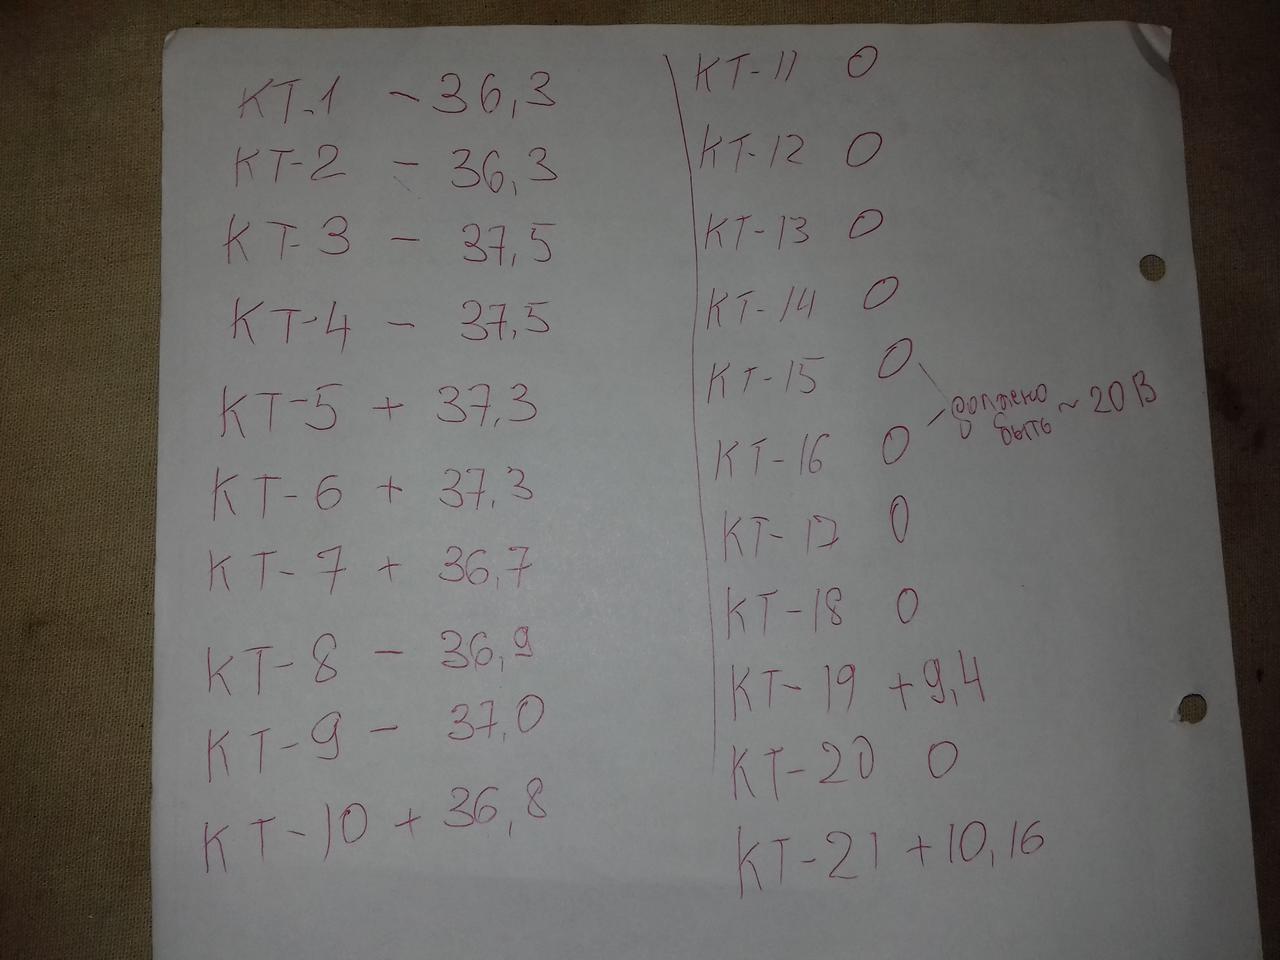 КТ-1 - 36,3
КТ-2 - 36,3
КТ-3 - 37,5
КТ-4 - 37,5
КТ-5 + 37,3
КТ-6 + 37,3
КТ-7 + 36,7
КТ-8 - 36,9
КТ-9 - 37,0
КТ-10 + 36,8
КТ-11 0
КТ-12 0
КТ-13 0
КТ-14 0
КТ-15 0
КТ-16 0
должно
быть ~ 20 В
КТ-17 0
КТ-18 0
КТ-19 +9,4
КТ-20 0
КТ-21 +10,16